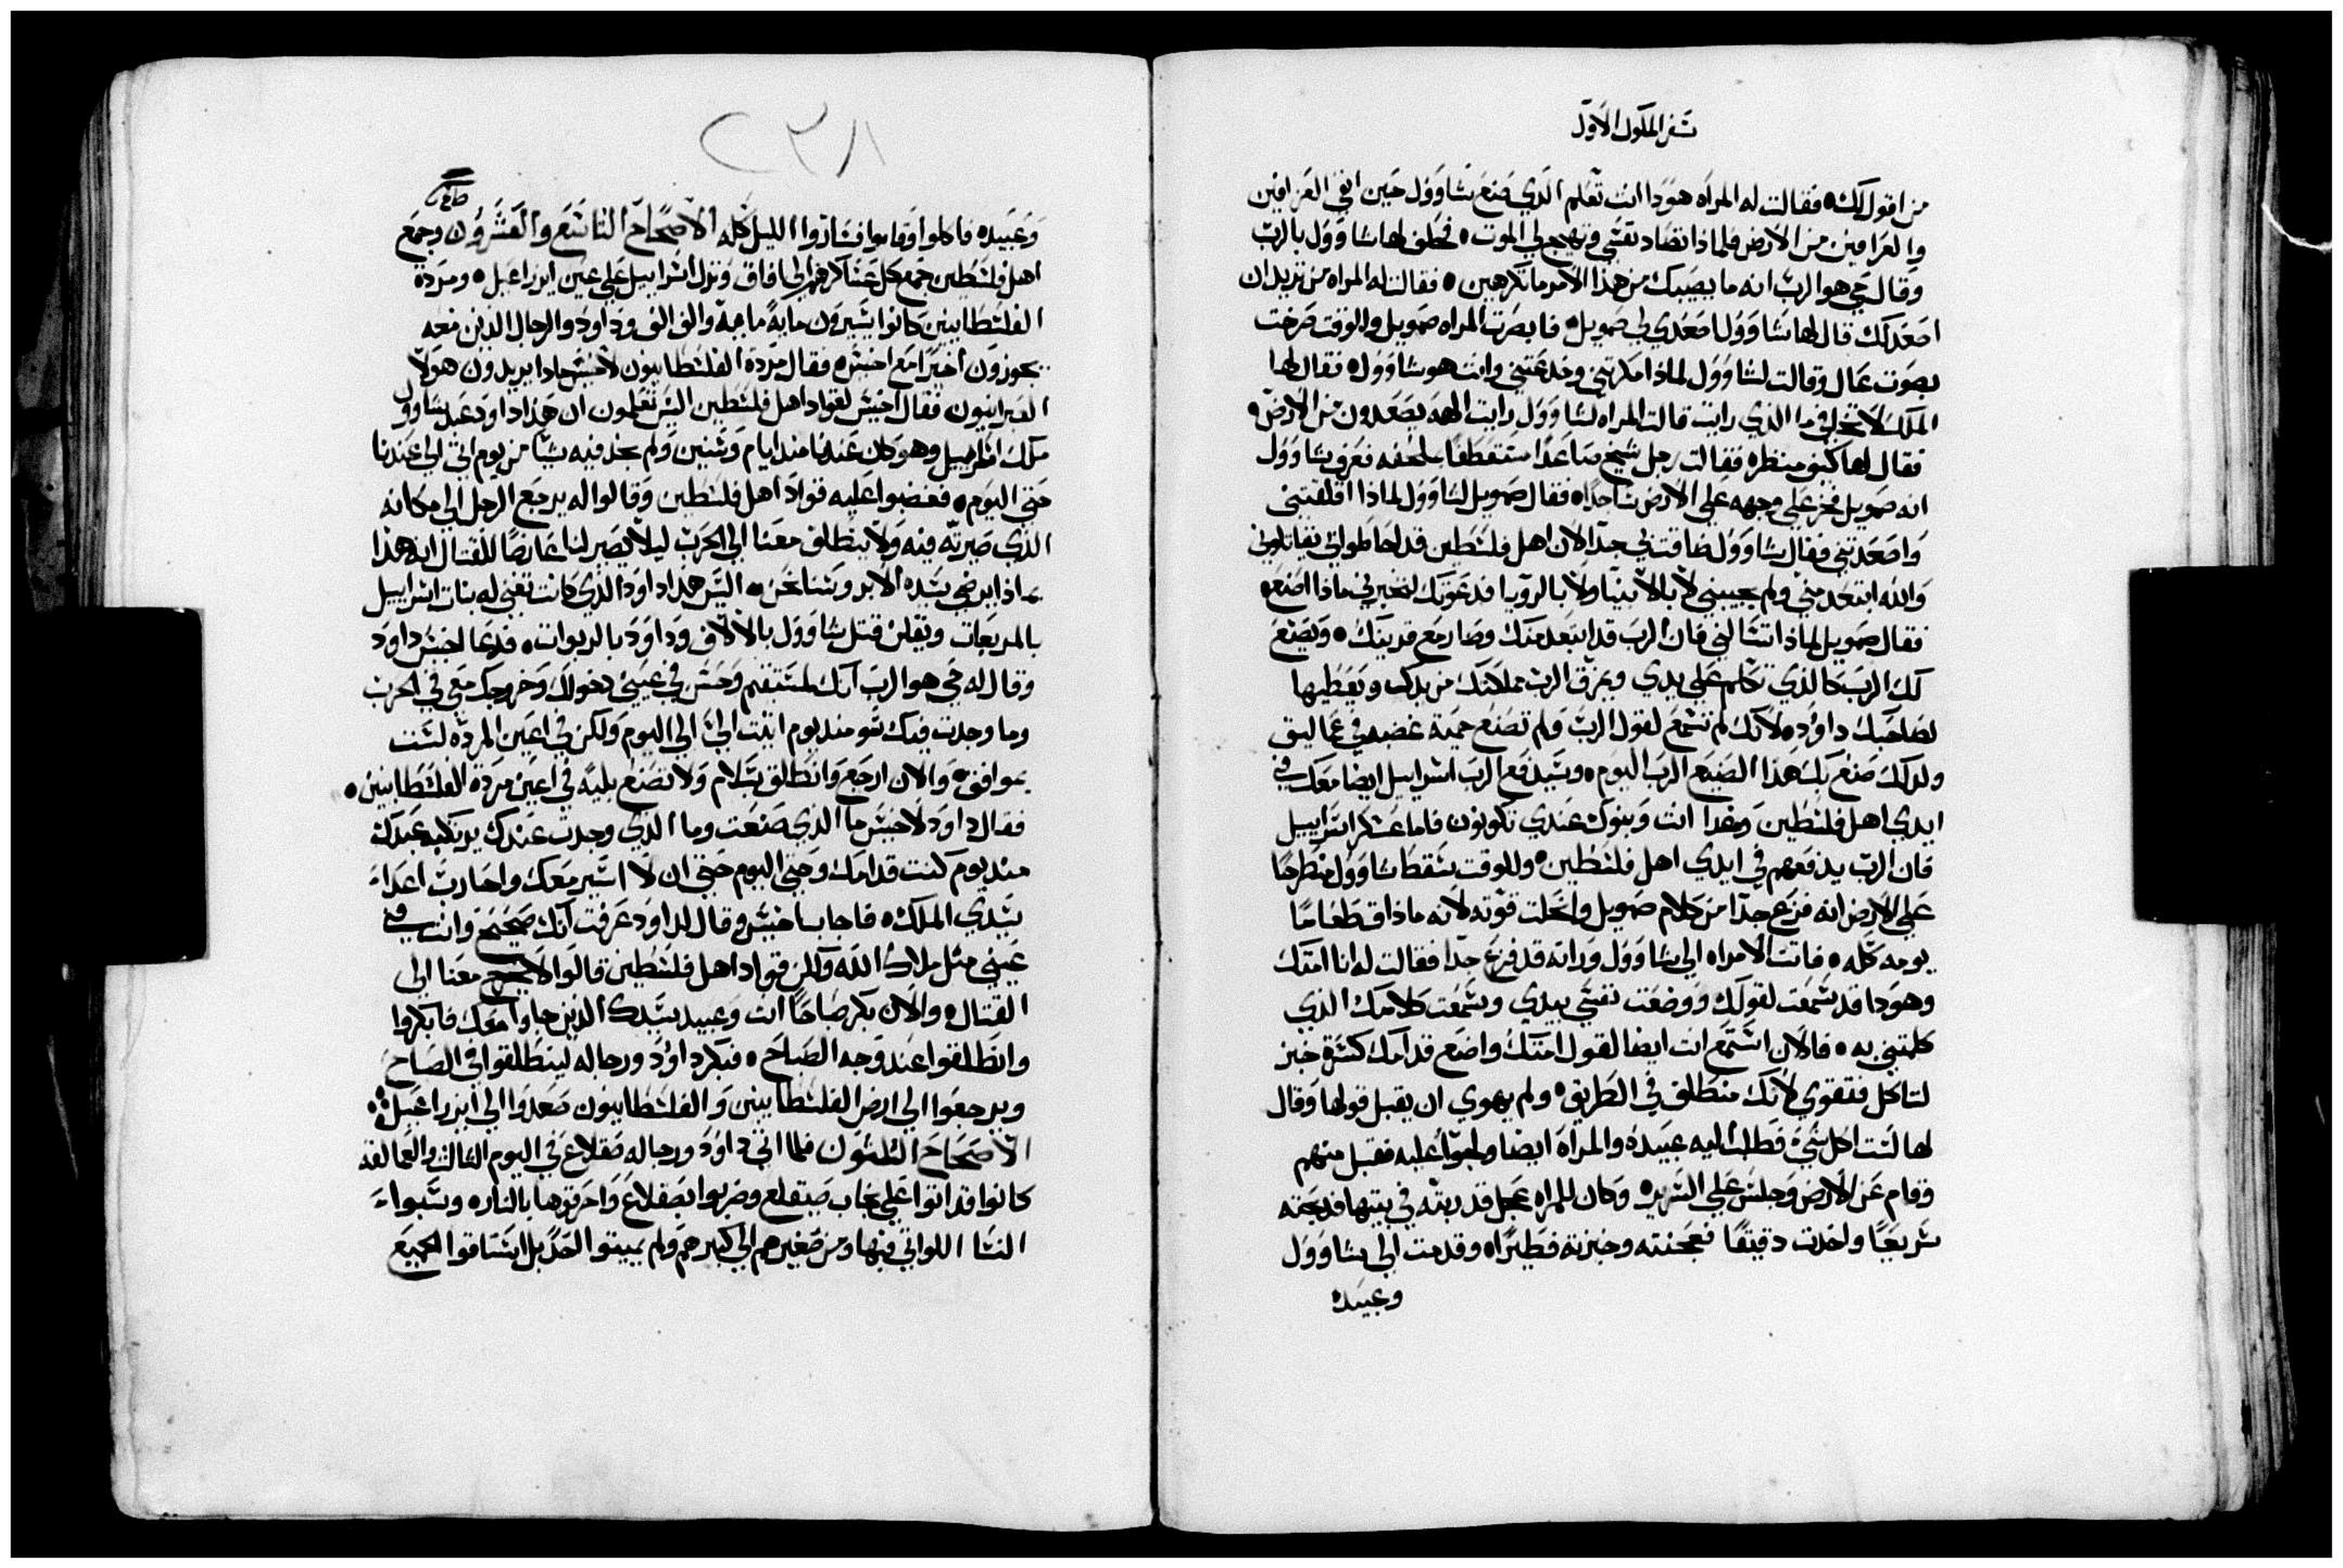 سفر الملوك الاول
من اقول لك، فقالت له المراه هودا انت تعلم الذي صنع شاوول حين انفي العرافين
والعرافين من الارض فلماذا تضاد نفسي وتهيج لي الموت، فحلف لها شاوول بالرب
وقال حي هو الرب انه ما يصيبك من هذا الامر ما تكرهين، فقالت له المراه من تريد ان
اصعد لك قال لها شاوول اصعدي لي صمويل، فابصرت المراه صمويل وللوقت صرخت
بصوت عال وقالت لشاوول لماذا مكرتني وخدعتني وانت هو شاوول، فقال لها
الملك لا تخافي ما الذي رايت قالت المراه لشاوول رايت الهه يصعدون من الارض،
فقال لها كيف منظره فقالت رجل شيخ صاعدا متعطفا بملحفه فعرف شاوول
انه صمويل فخر علي وجهه علي الارض ساجدا، فقال صمويل لشاوول لماذا اقلقتني
واصعدتني فقال شاوول ضاقت بي جدا لان اهل فلسطين قد احاطوا بي يقاتلوني
والله ابتعد مني ولم يجيبني لا بالانبيا ولا بالرويا فدعوتك لتخبرني ماذا اصنع،
فقال صمويل لماذا تسالني فان الرب قد ابتعد منك وصار مع قريبك، ويصنع
لك الرب كالذي تكلم علي يدي ويمزق الرب مملكتك من يدك ويعطيها
لصاحبك داوود، لانك لم تسمع لقول الرب ولم تصنع حمية غضبه في عماليق
ولذلك صنع بك هذا الصنيع الرب اليوم، وسيدفع الرب اسراييل ايضا معك في
ايدي اهل فلسطين وغدا انت وبنوك عندي تكونون فاما عسكر اسراييل
فان الرب يدفعهم في ايدي اهل فلسطين، وللوقت سقط شاوول منطرحا
علي الارض انه فزع جدا من كلام صمويل وانحلت قوته لانه ما ذاق طعاما
يومه كله، فاتت الامراه الي شاوول وراته قد فزع جدا فقالت له انا امتك
وهودا قد سمعت لقولك ووضعت نفسي بيدي وسمعت كلامك الذي
كلمتني به، فالان استمع انت ايضا لقول امتك واضع قدامك كسرة خبز
لتاكل فتقوي لانك منطلق في الطريق، ولم يهوي ان يقبل قولها وقال
لها لست اكل شي فطلب اليه عبيده والمراه ايضا ولجوا عليه فقبل منهم
وقام عن الارض وجلس علي السرير، وكان للمراه عجل قد ربته في بيتها فذبحته
سريعا واخذت دقيقا فعجنته وخبزته فطيرا، وقدمت الي شاوول
وعبيده
٢٣٨
وعبيده فاكلوا وقاموا فساروا الليل كله الاصحاح التاسع والعشرون وجمع
اهل فلسطين جمع كل عساكرهم الي افاق ونزل اسراييل علي عين ايزراعيل، ومردة
الفلسطانيين كانوا يسيرون ماية ماية والف الف وداوود والرجال الذين معه
يجوزون اخيرا مع اخيش، فقال مردة الفلسطانيون لاخيش ماذا يريدون هولا
العبرانيون فقال اخيش لقواد اهل فلسطين اليس تعلمون ان هذا داود عبد شاوول
ملك اسراييل وهو كان عندنا مند ايام وسنين ولم نجد فيه شيا من يوم اتي الي عندنا
حتي اليوم، فغضبوا عليه قواد اهل فلسطين وقالوا له يرجع الرجل الي مكانه
الذي صيرته فيه ولا ينطلق معنا الي الحرب ليلا يصير لنا عارضا للقتال انه هذا
بماذا يرضي سيده الا بروسنا نحن، اليس هذا داود الذي كانت تغني له بنات اسراييل
بالمربعات ويقلن قتل شاوول بالالاف وداود بالربوات، فدعا اخيش داود
وقال له حي هو الرب انك مستقيم وحسن في عيني دخولك وخروجك معي في الحرب
وما وجدت فيك سو منذ يوم اتيت الي الي اليوم ولكن في اعين المردة لست
بموافق، والان ارجع وانطلق بسلام ولا تصنع بليه في اعين مردة الفلسطانيين،
فقال داود لاخيش ما الذي صنعت وما الذي وجدت عندك يرتكبه عبدك
منذ يوم كنت قدامك وحتي اليوم حتي ان لا اسير معك واحارب اعداء
سيدي الملك، فاجاب اخيش وقال لداود عرفت انك صحيح وانت في
عيني مثل ملاك الله ولكن قواد اهل فلسطين قالوا لا يخرج معنا الي
القتال، والان بكر صباحا انت وعبيد سيدك الذين جاوا معك فابكروا
وانطلقوا عند وجه الصباح، فبكر داوود ورجاله لينطلقوا في الصباح
ويرجعوا الي ارض الفلسطانيين والفلسطانيون صعدوا الي ايزراعيل
الاصحاح الثلثون فلما اتي داوود ورجاله صقلاع في اليوم الثالث والعمالقه
كانوا قد اتوا علي جانب صيقلع وضربوا بصقلاع واحرقوها بالنار، وسبواء
النسا اللواتي فيها ومن صغيرهم الي كبيرهم ولم يميتوا احدا بل استاقوا الجميع